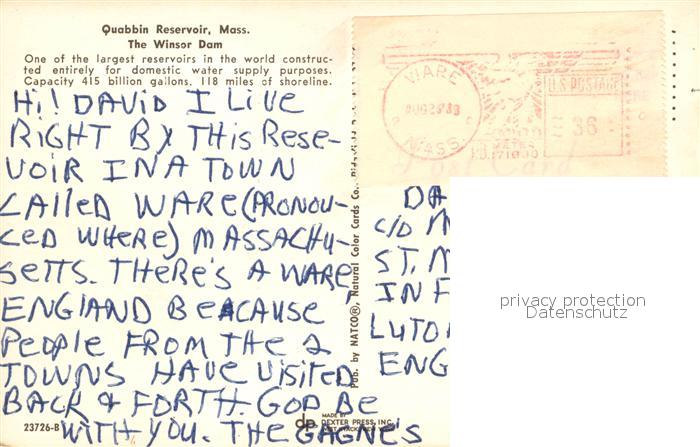 Quabbin Reservoir, Mass.
The Winsor Dam
One of the largest reservoirs in the world construc-
ted entirely for domestic water supply purposes.
Capacity 415 billion gallons, 118 miles of shoreline.
Hi! DAVID I LIVE
RIGHT BY THIS RESE-
VOIR IN A TOWN
CALLED WARE (PRONOU-
CED WHERE) MASSACHU-
SETTS. THERE'S A WARE,
ENGLAND BEACAUSE
PEOPLE FROM THE 2
TOWNS HAVE VISITED
BACK & FORTH. GOD BE
WITH YOU. THE GAGNE'S
23726-B
MADE BY
dp DEXTER PRESS, INC.
Pub. by NATCO®, Natural Color Cards Co.,
WARE
MASS.
U.S. POSTAGE
36
DA
C/O M
ST. M
IN F
LUTO
ENG
privacy protection
Datenschutz